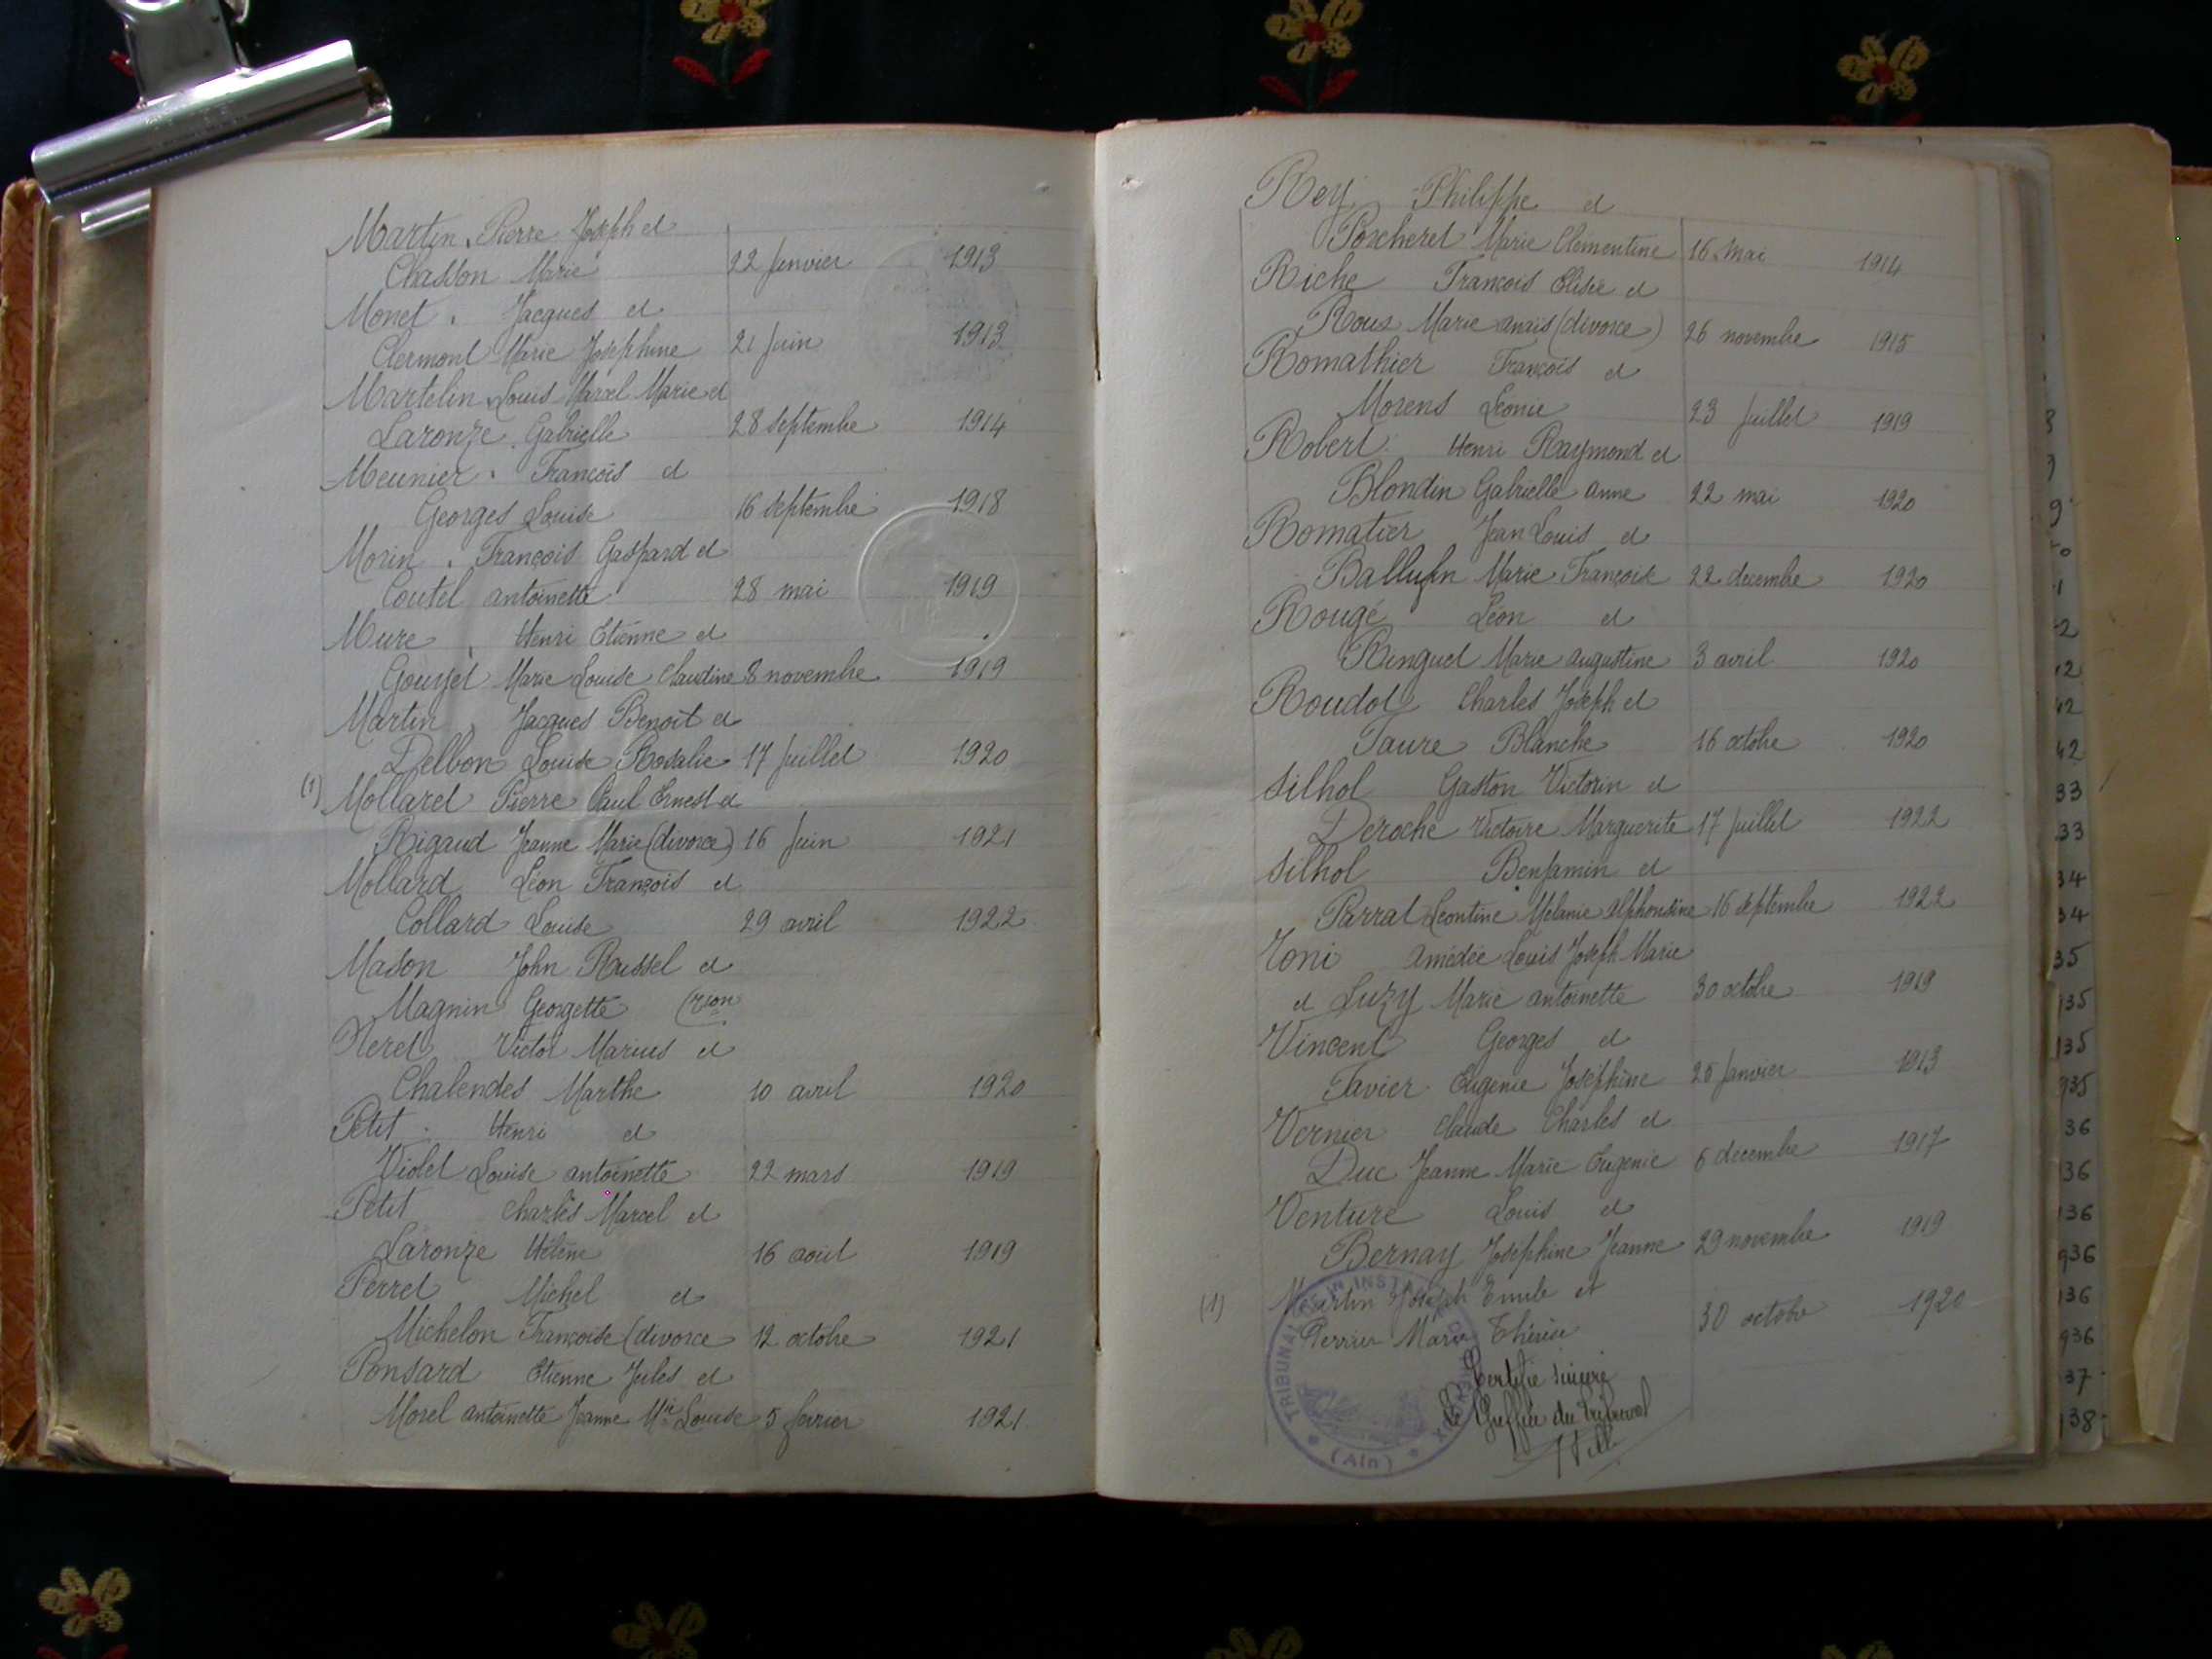 Martin Pierre Joseph et
Chasson Marie 22 Janvier 1913
Monet Jacques et
Clermont Marie Joséphine 21 Juin 1913
Martelin Louis Marcel Marie et
Laronze Gabrielle 28 septembre 1914
Meunier François et
Georges Louise 16 septembre 1918
Morin François Gaspard et
Coutel antoinette 28 mai 1919
Mure Henri Etienne et
Gouyet Marie Louise Claudine 8 novembre 1919
Martin Jacques Benoit et
Delbon Louise Rosalie 17 Juillet 1920
(1) Mollaret Pierre Paul Ernest et
Rigaud Jeanne Marie (divorce) 16 Juin 1921
Mollard Léon François et
Collard Louise 29 avril 1922
Mason John Russel et
Magnin Georgette (von
Neret Victor Marius et
Chalendes Marthe 10 avril 1920
Petit Henri et
Violet Louise antoinette 22 mars 1919
Petit Charles Marcel et
Laronze Hélène 16 août 1919
Perret Michel et
Michelon Françoise (divorce 12 octobre 1921
Ponsard Etienne Jules et
Morel antoinette Jeanne Mie Louise 5 février 1921
Rey Philippe et
Pocheret Marie Clémentine 16 Mai 1914
Riche François Elisée et
Roux Marie anaïs (divorce) 26 novembre 1915
Romathier François et
Morens Léonie 23 Juillet 1919
Robert Henri Raymond et
Blondin Gabrielle anne 22 mai 1920
Romatier Jean Louis et
Ballufin Marie Françoise 22 decembre 1920
Rougé Léon et
Ringuet Marie augustine 3 avril 1920
Roudot Charles Joseph et
Faure Blanche 16 octobre 1920
Silhol Gaston Victorin et
Déroche Victoire Marguerite 17 Juillet 1922
Silhol Benjamin et
Parrat Léontine Mélanie Alphonsine 16 septembre 1922
Toni Amédée Louis Joseph Marie
et Luzy Marie antoinette 30 octobre 1919
Vincent Georges et
Favier Eugénie Joséphine 25 Janvier 1913
Vernier Claude Charles et
Duc Jeanne Marie Eugenie 6 decembre 1917
Venture Louis et
Bernay Joséphine Jeanne 29 novembre 1919
(1) Martin Joseph Emile et
Perrier Marie Thérèse 30 octobre 1920
Certifié sincère
Le Greffier du Tribunal
TRIBUNAL
(Ain)